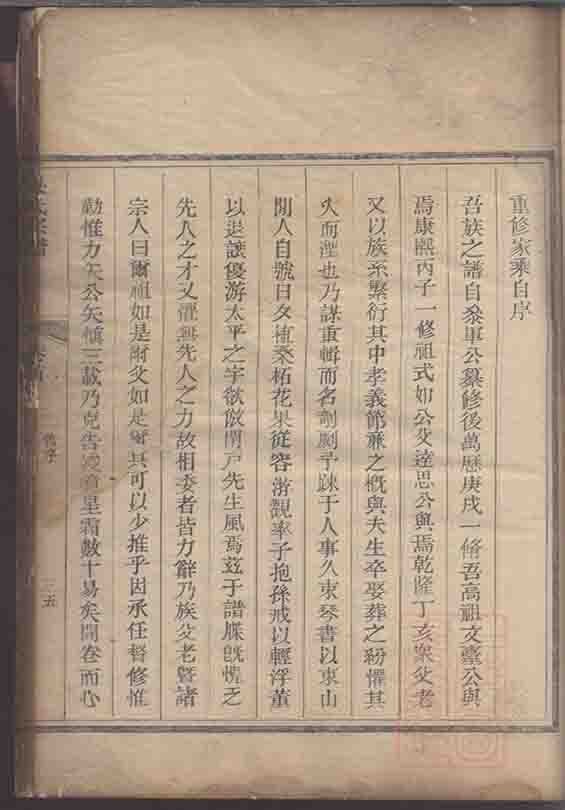 重修家乘自序
吾族之譜自參軍公纂修後萬歷庚戌一脩吾高祖文臺公與
焉康熙丙子一修祖式如公父逵思公與焉乾隆丁亥衆父老
又以族系繁衍其中孝義節廉之概與夫生卒娶葬之紛懼其
久而湮也乃謀重輯而名剞劂予踈于人事久束琴書以東山
閒人自號日夕植桑柘花果從容游觀率子抱孫戒以輕浮董
以退讓優游太平之宇欲倣閉戶先生風焉玆于譜牒旣慌乏
先人之才又懼無先人之力故相委者皆力辭乃族父老暨諸
宗人曰爾祖如是爾父如是爾其可以少推乎因承任督修惟
勤惟力矢公矢愼三載乃克告竣前星霜數十易矣開卷而心
氏宗譜
舊序
三五